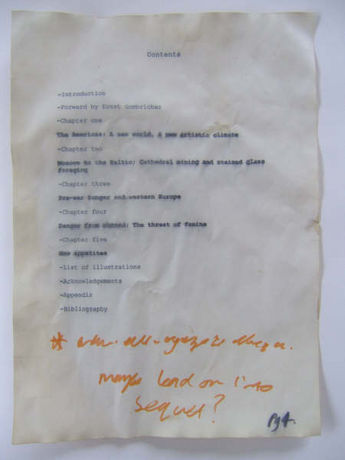 Contents
-Introduction
-Forward by Ernst Gombricher
-Chapter one
The Americas: A new world, A new artistic climate
-Chapter two
Moscow to the Baltic; Cathedral mining and stained glass
foraging
-Chapter three
Pre-war hunger and western Europe
-Chapter four
Danger from abroad; The threat of famine
-Chapter five
New appetites
-List of illustrations
-Acknowledgements
-Appendix
-Bibliography
*
maybe lead on into
sequel?
Pg4.